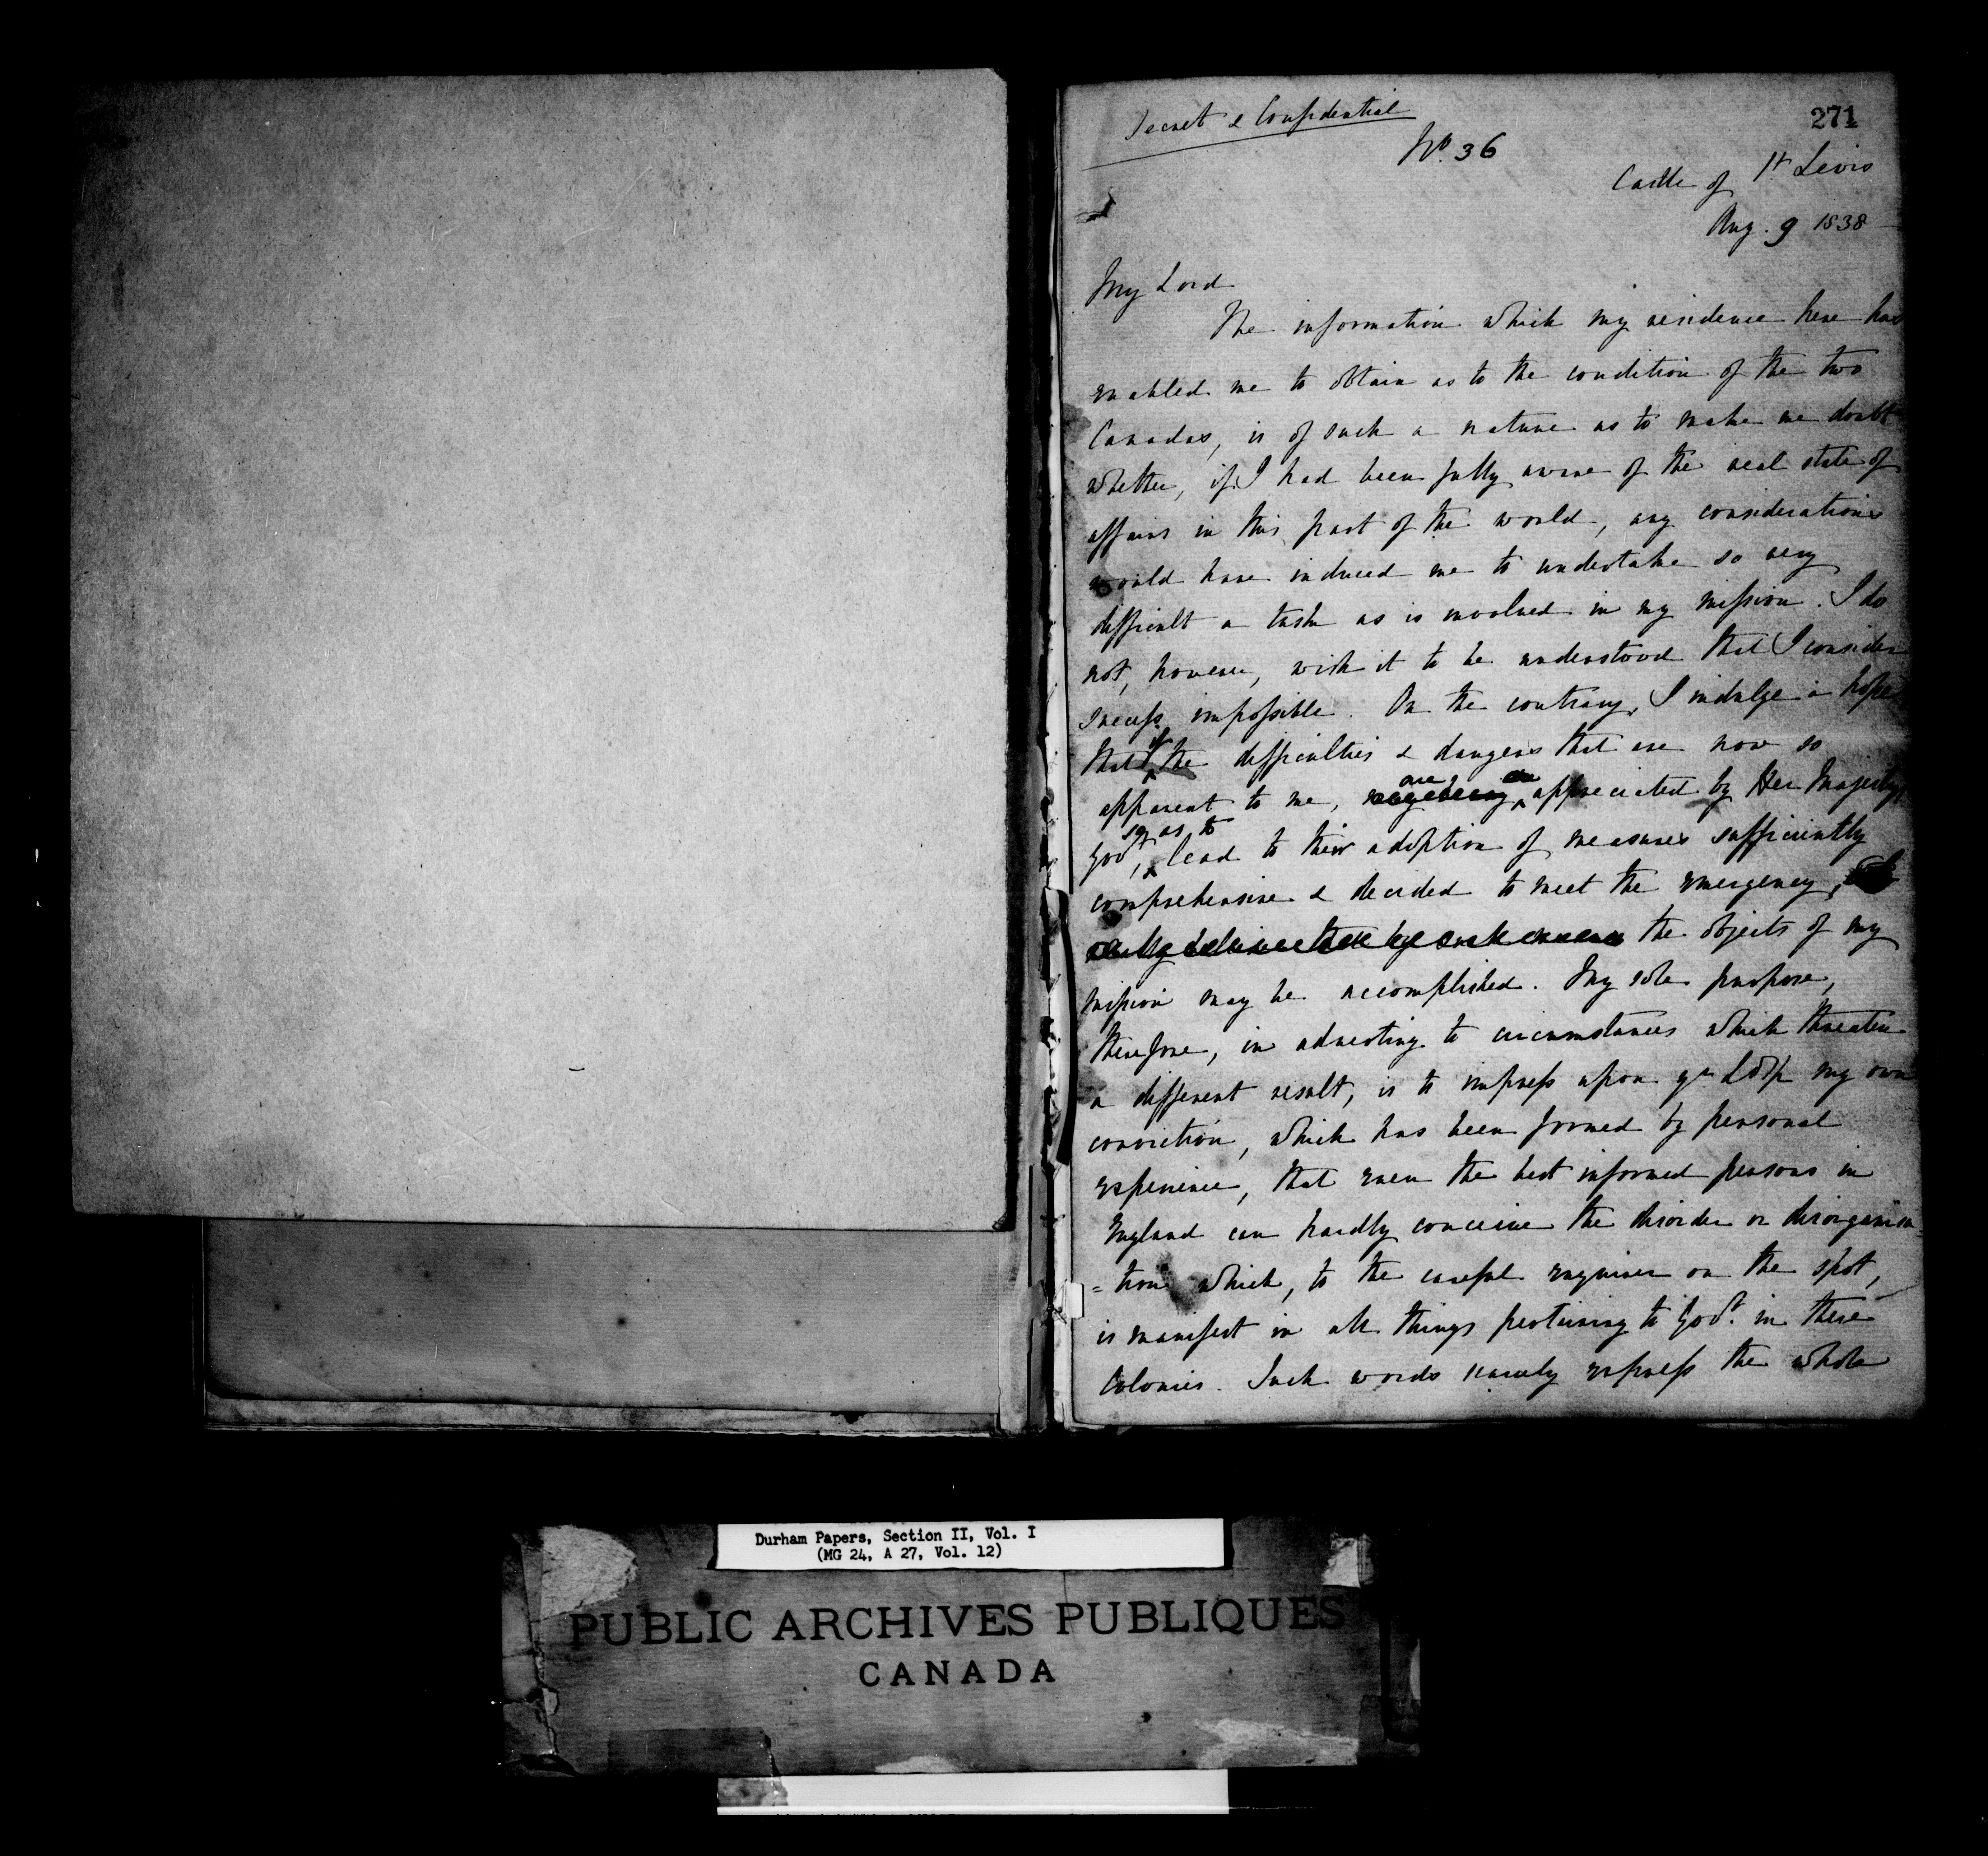 271
Secret & Confidential
No. 36
Castle of St Lewis
Aug. 9 1838
My Lord
The information which my residence here has
enabled me to obtain as to the condition of the two
Canadas, is of such a nature as to make me doubt
whether, if I had been fully aware of the real state of
affairs in this part of the world, any considerations
would have induced me to undertake so very
difficult a task as is involved in my mission. I do
not, however, wish it to be understood that I consider
success impossible. On the contrary, I indulge a hope
that if the difficulties & dangers that are now so
apparent to me, are appreciated by Her Majesty's
Govt, so as to lead to their adoption of measures sufficiently
comprehensive & decided to meet the emergency,
the objects of my
mission may be accomplished. My sole purpose,
therefore, in adverting to circumstances which threaten
a different result, is to impress upon yr Ldsp my own
conviction, which has been formed by personal
experience, that even the best informed persons in
England can hardly conceive the disorder or disorganiza=
=tion which, to the careful enquirer on the spot,
is manifest in all things pertaining to Govt. in these
Colonies. Such words scarcely express the whole
Durham Papers, Section II, Vol. I
(MG 24, A 27, Vol. 12)
PUBLIC ARCHIVES PUBLIQUES
CANADA